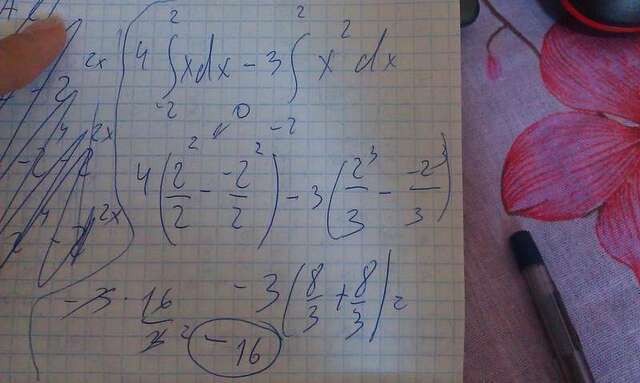 4 ∫₋₂² x dx - 3 ∫₋₂² x² dx
0
4 (2²/2 - -2²/2) - 3 (2³/3 - -2³/3)
-3 (8/3 + 8/3) =
-3 · 16/3 = -16
2x
2x
2x